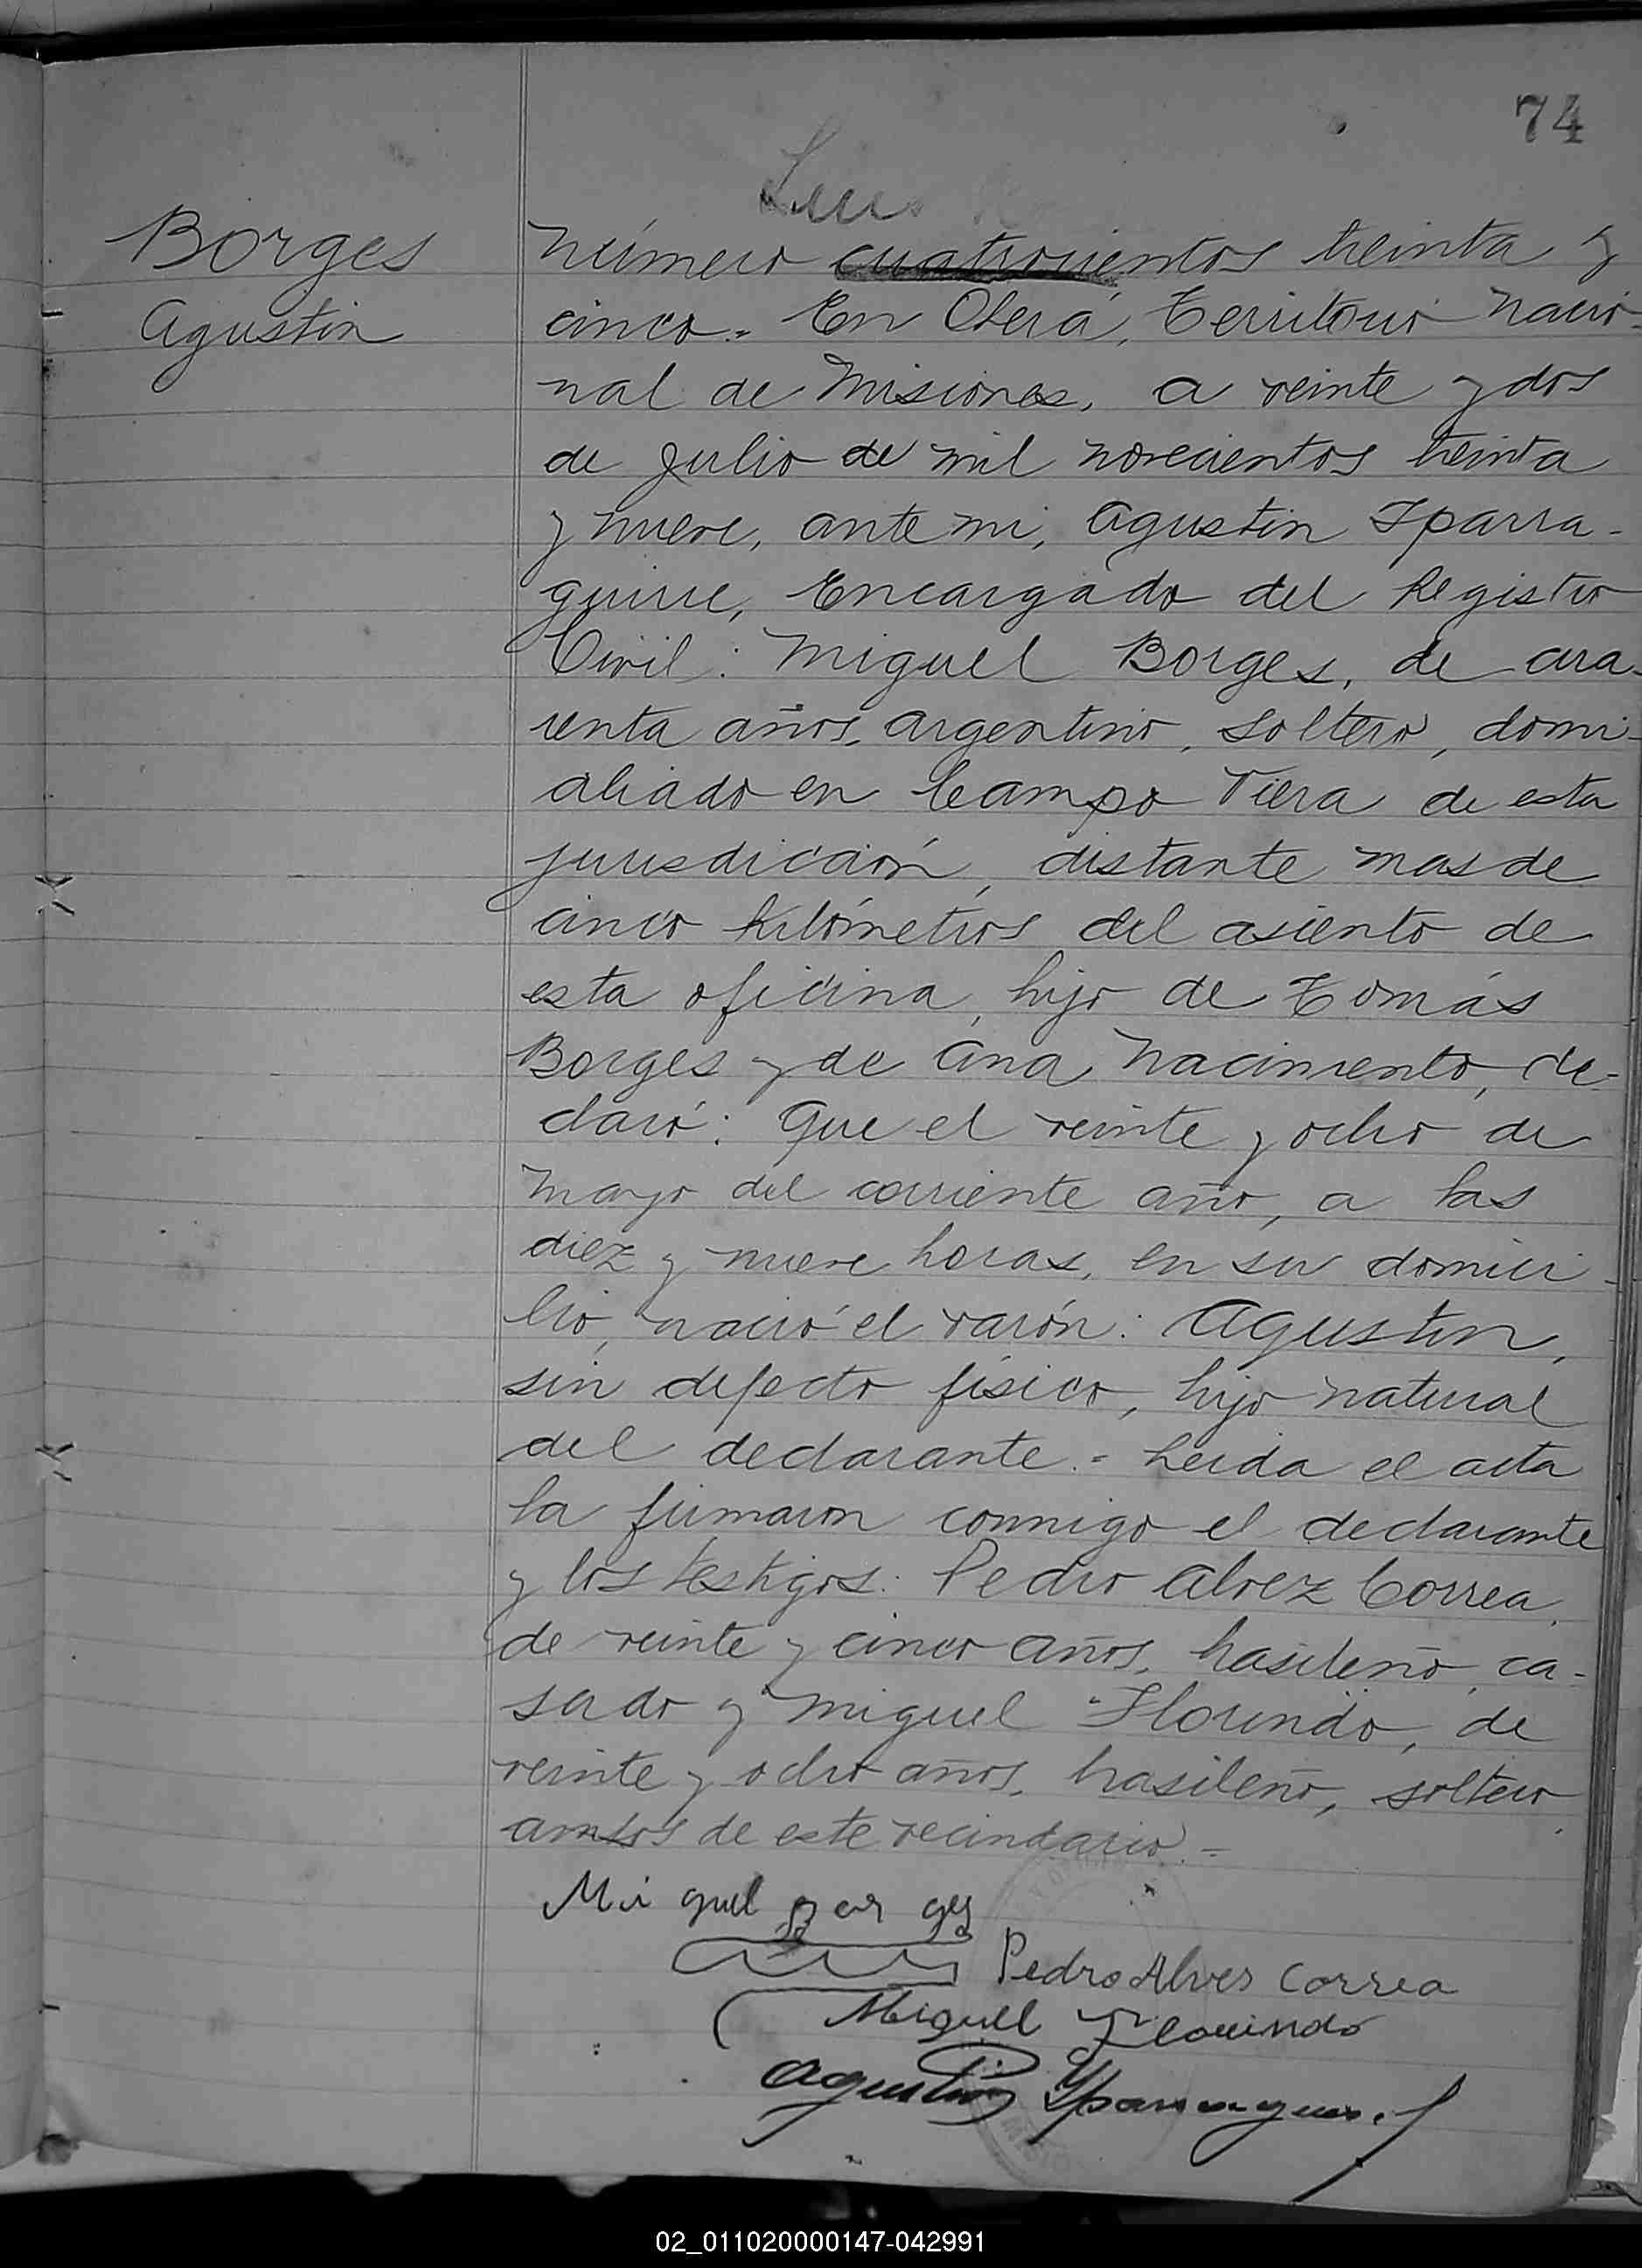 74
Borges
Agustin
Número cuatrocientos treinta y
cinco.- En Oberá, Territorio Nacio-
nal de Misiones, a veinte y dos
de Julio de mil novecientos treinta
y nueve, ante mi, Agustin Iparra-
guirre, Encargado del Registro
Civil: Miguel Borges, de cua-
renta años, argentino, soltero, domi-
ciliado en Campo Viera de esta
jurisdicción, distante mas de
cinco kilómetros del asiento de
esta oficina, hijo de Tomás
Borges y de Ana Nacimento, de-
claró: Que el veinte y ocho de
Mayo del corriente año, a las
diez y nueve horas, en su domici-
lio, nació el varón: Agustin,
sin defecto físico, hijo natural
del declarante.- Leida el acta
la firmaron conmigo el declarante
y los testigos: Pedro Alvez Correa,
de veinte y cinco años, brasileño, ca-
sado y Miguel Florindo, de
veinte y ocho años, brasileño, soltero
ambos de este vecindario.-
Mi guel
Pedro Alves Correa
Miguell Florindo
Agustin Yparraguirre
02_011020000147-042991